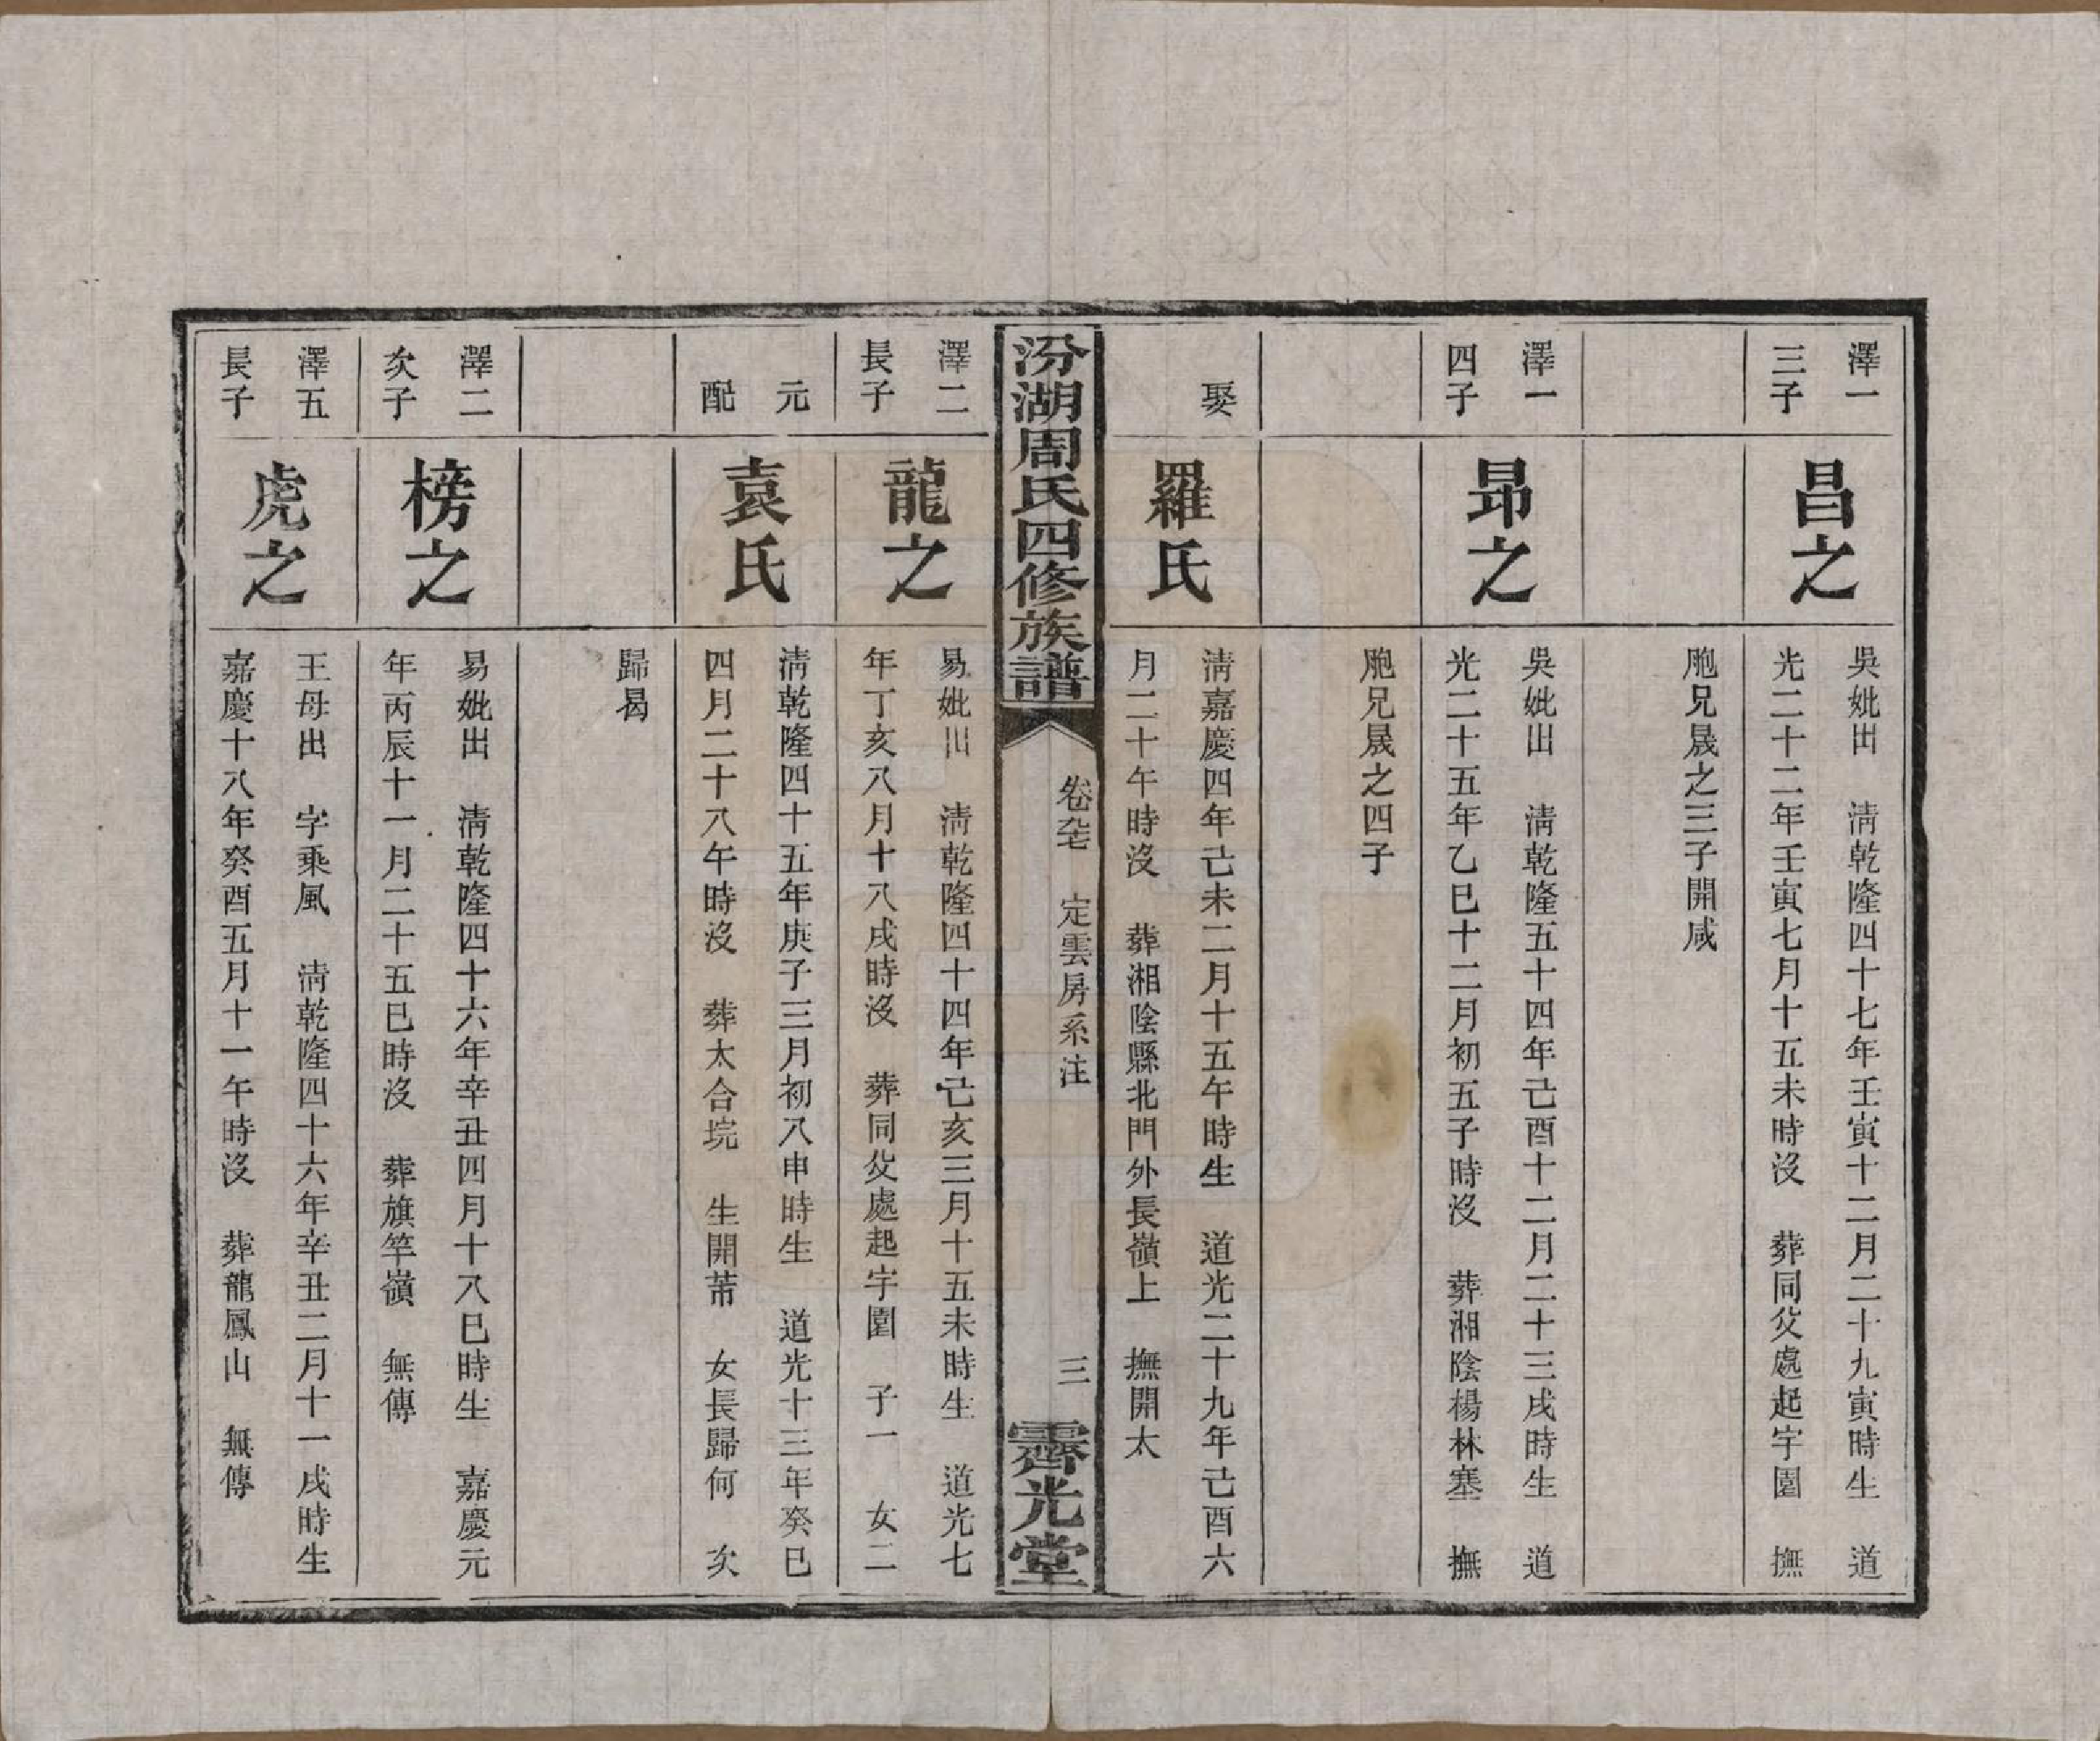 澤一
三子
昌之
吳妣出　清乾隆四十七年壬寅十二月二十九寅時生　道
光二十二年壬寅七月十五未時沒　葬同父處起字園　撫
胞兄晟之三子開咸
澤一
四子
昂之
吳妣出　清乾隆五十四年己酉十二月二十三戌時生　道
光二十五年乙巳十二月初五子時沒　葬湘陰楊林塞　撫
胞兄晟之四子
娶
羅氏
清嘉慶四年己未二月十五午時生　道光二十九年己酉六
月二十午時沒　葬湘陰縣北門外長嶺上　撫開太
汾湖周氏四修族譜
卷　定雲房系注
三
霽光堂
澤二
長子
龍之
易妣出　清乾隆四十四年己亥三月十五未時生　道光七
年丁亥八月十八戌時沒　葬同父處起字園　子一　女二
元
配
袁氏
清乾隆四十五年庚子三月初八申時生　道光十三年癸巳
四月二十八午時沒　葬太合垸　生開芾　女長歸何　次
歸曷
澤二
次子
榜之
易妣出　清乾隆四十六年辛丑四月十八巳時生　嘉慶元
年丙辰十一月二十五巳時沒　葬旗竿嶺　無傳
澤五
長子
虎之
王母出　字乘風　清乾隆四十六年辛丑二月十一戌時生
嘉慶十八年癸酉五月十一午時沒　葬龍鳳山　無傳